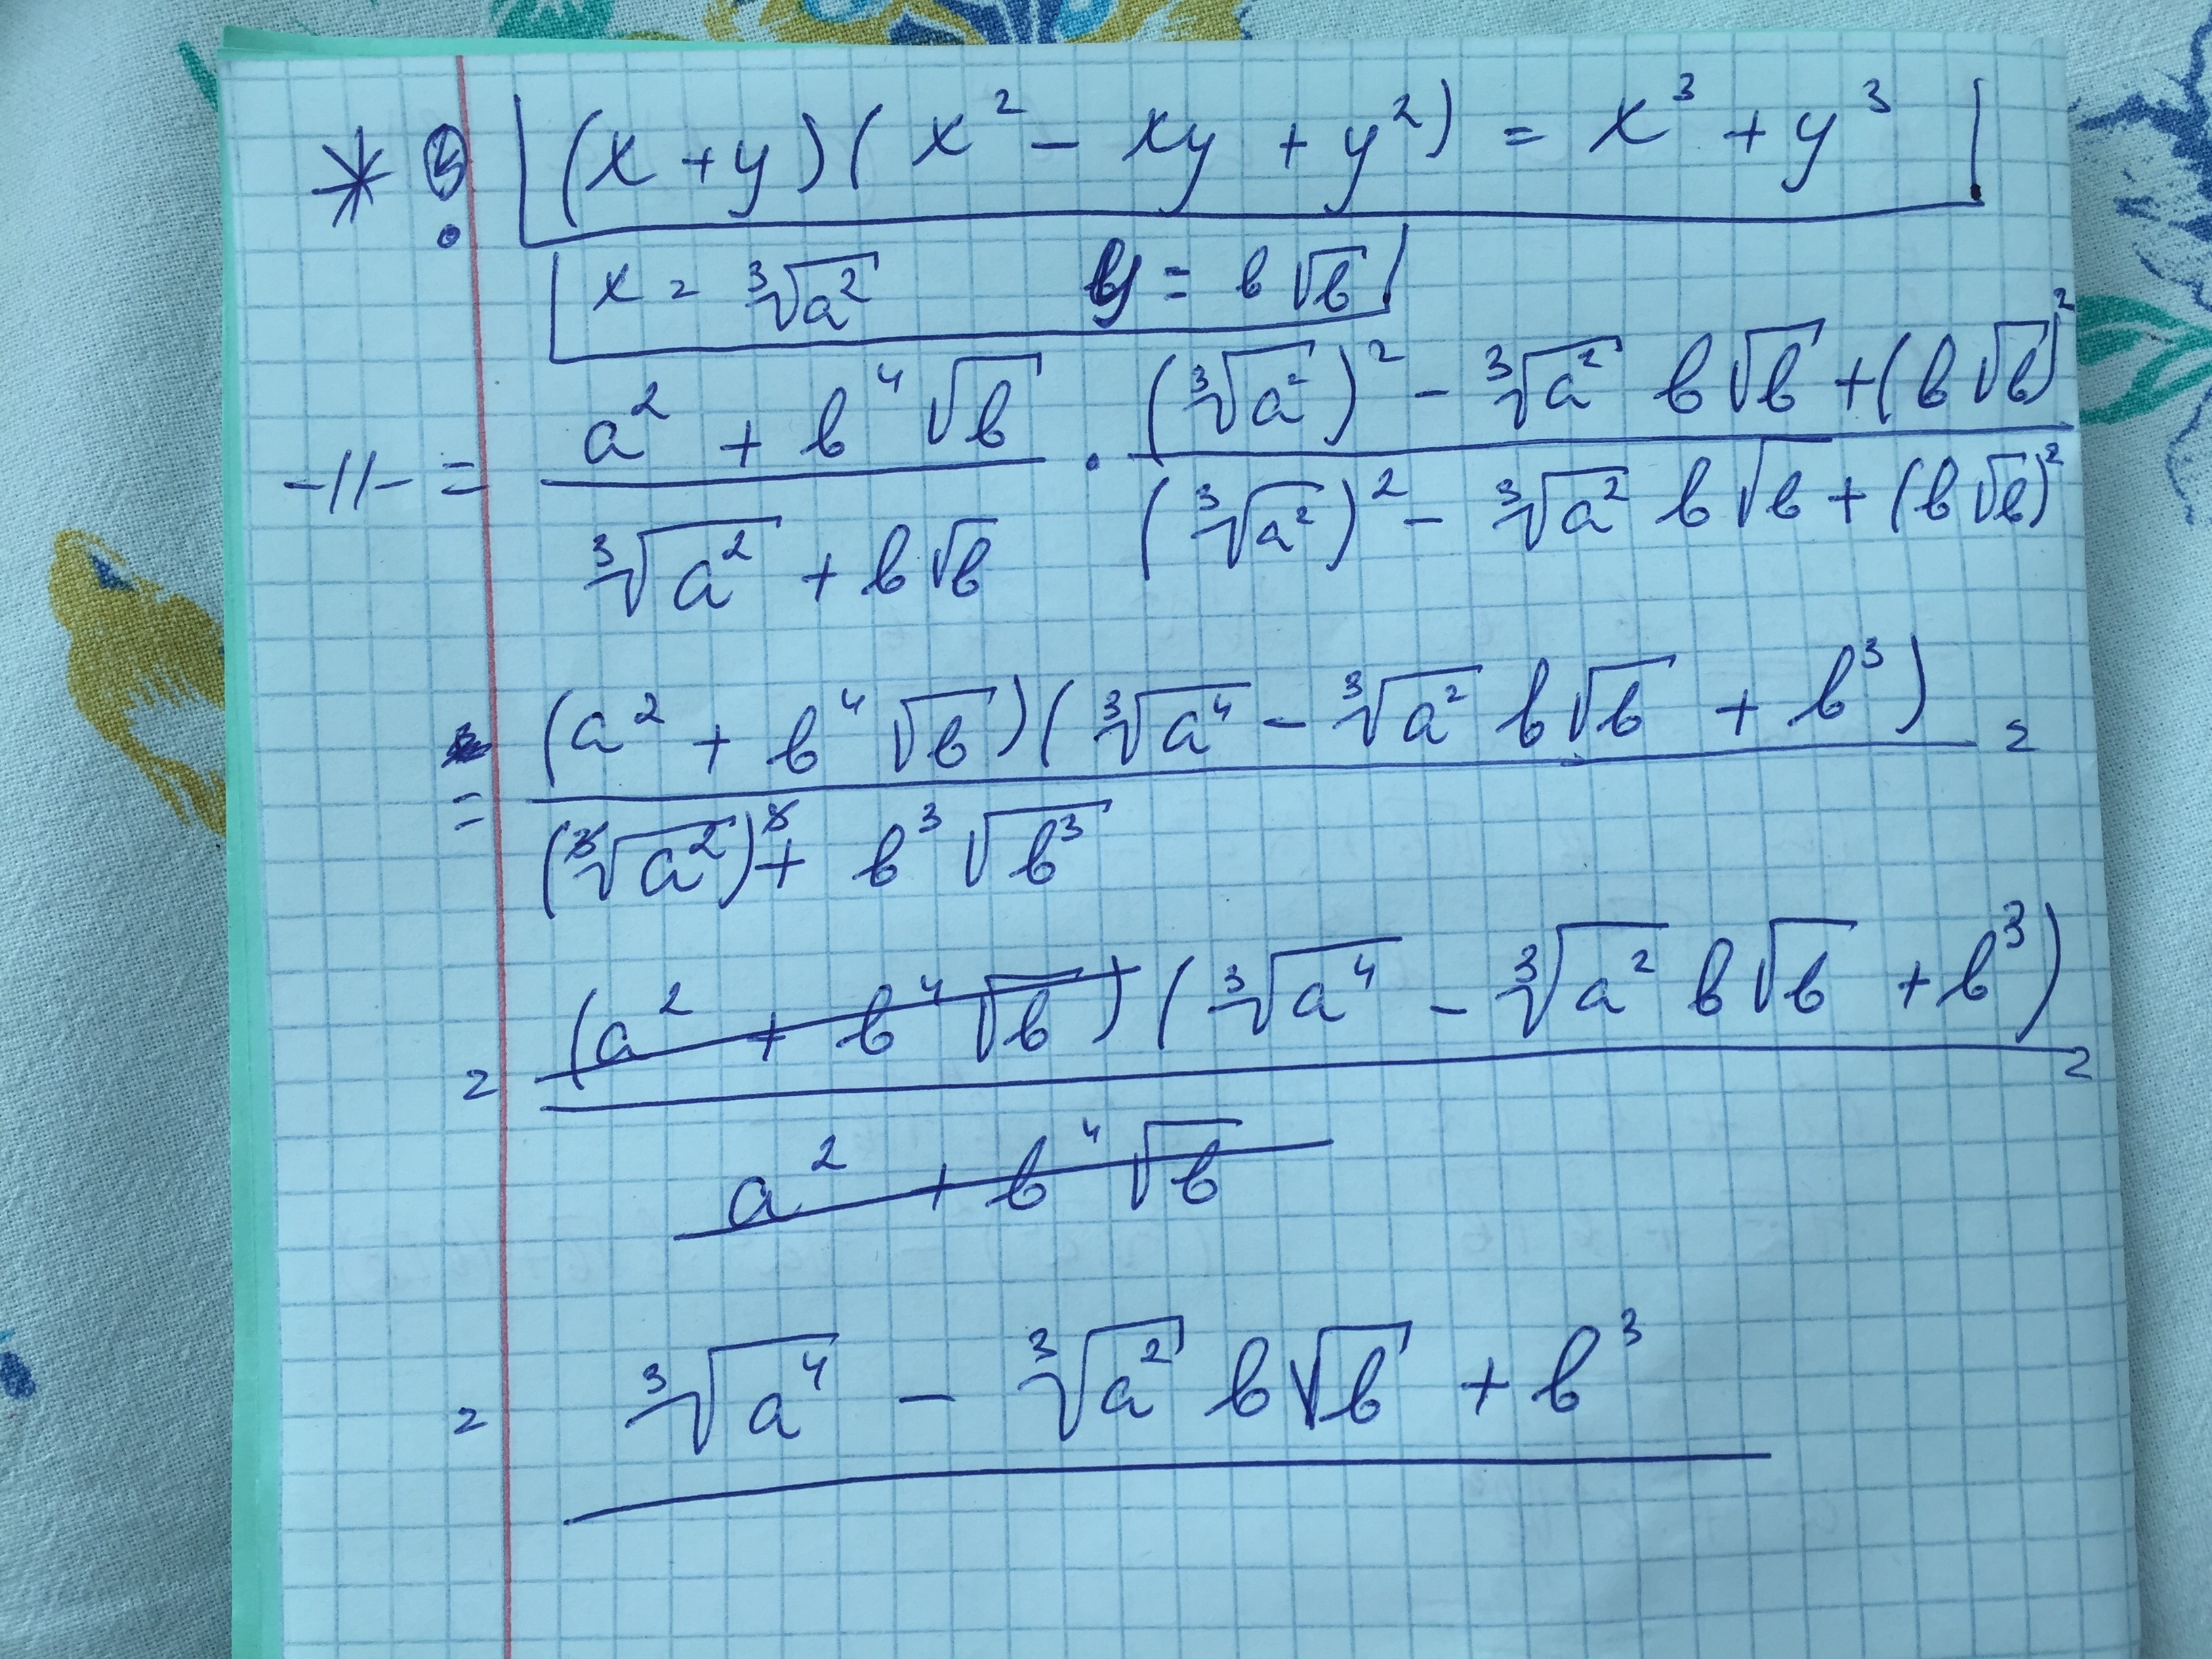 * (x + y)(x² − xy + y²) = x³ + y³
x = ∛a² y = b√b
−//− = (a² + b⁴√b)/(∛a² + b√b) · ((∛a²)² − ∛a² b√b + (b√b)²)/((∛a²)² − ∛a² b√b + (b√b)²)
= ((a² + b⁴√b)(∛a⁴ − ∛a² b√b + b³))/((∛a²)³ + b³√b³) =
= ((a² + b⁴√b)(∛a⁴ − ∛a² b√b + b³))/(a² + b⁴√b) =
= ∛a⁴ − ∛a² b√b + b³